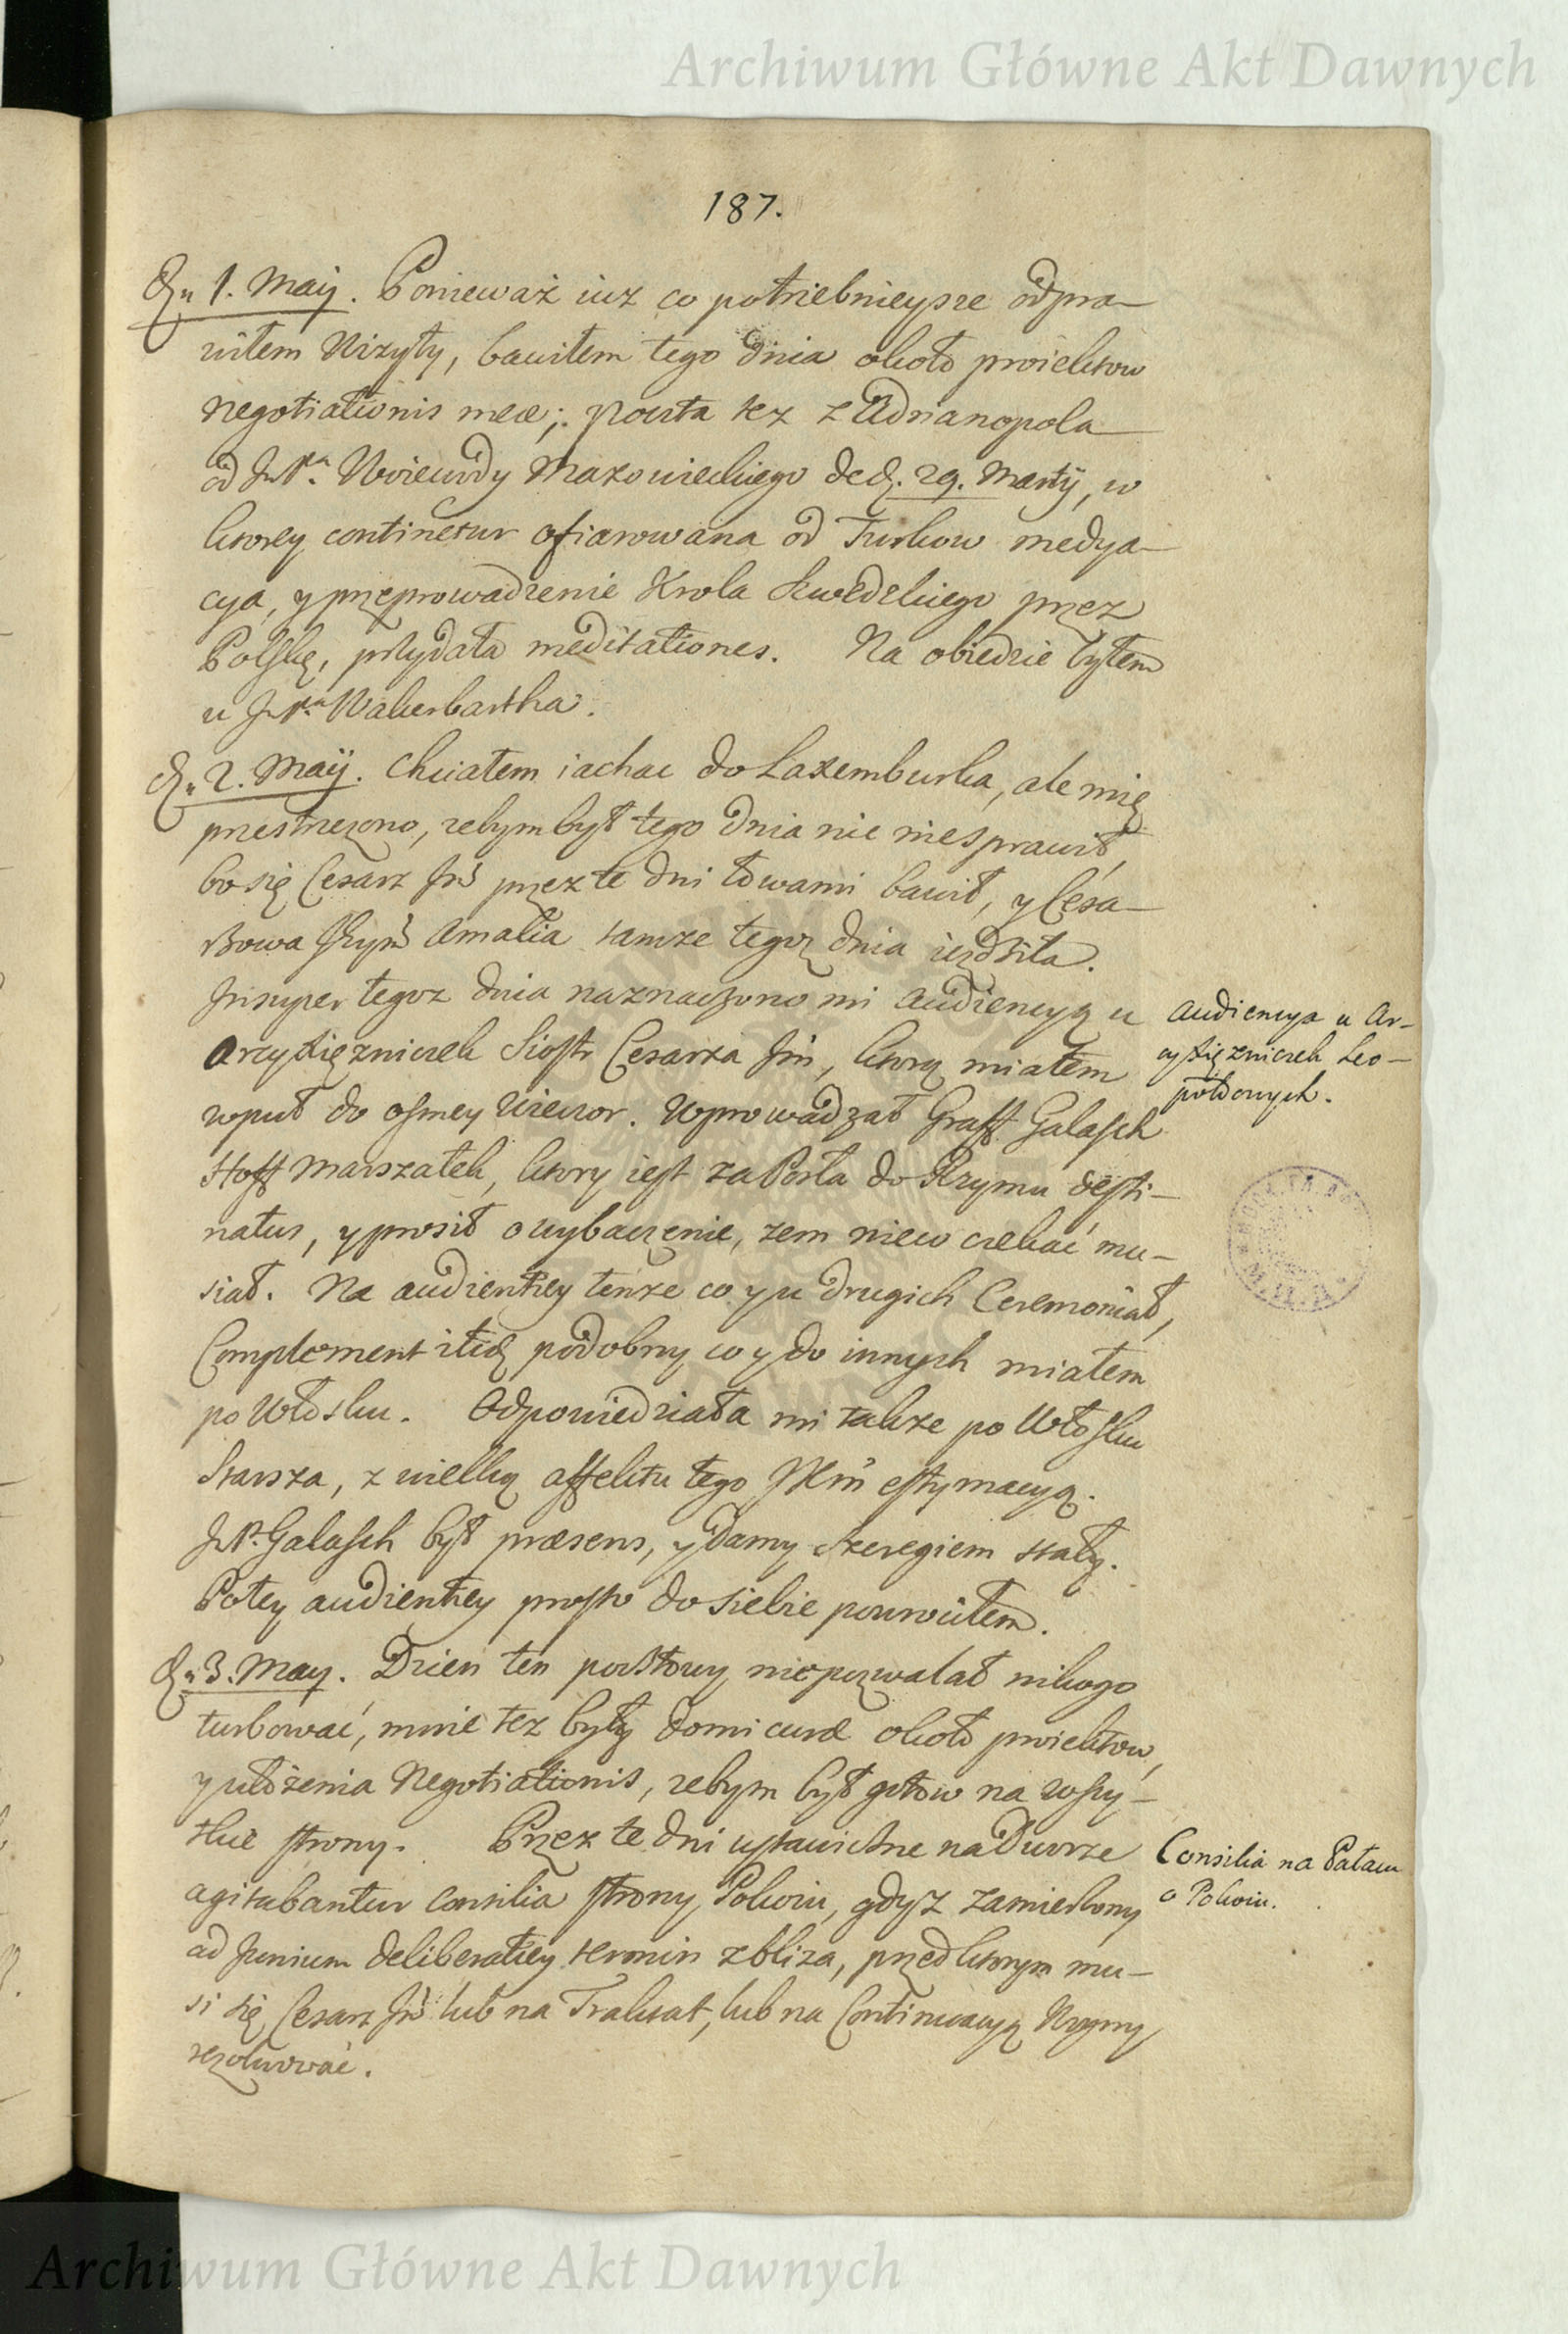 Archiwum Główne Akt Dawnych
187.
1. Maij. Ponieważ iuz co potrzebnieysze odpra-
wiłem Wizyty, bawiłem tego dnia około proiektow
negotiationis meæ; poczta tez z Adrianopola
od Woiewody Mazowieckiego 29. Martij, w
ktorey continetur ofiarowana od Turkow medya-
cya, y przeprowadzenie Krola Szwedzkiego przez
Polskę, przydała meditationes. Na obiedzie byłem
u Wakerbartha.
2. Maij. Chciałem iachac do Laxemburka, ale mię
przestrzezono, zebym był tego dnia nic niesprawił,
bo się Cesarz Jm̃ przez te dni łowami bawił, y Cesa-
rzowa Amalia tamze tegoz dnia iezdziła.
Insuper tegoz dnia naznaczono mi Audiencyą u
Arcyxięzniczek Siostr Cesarza Jm̃, ktorą miałem
wpuł do osmey wieczor. Wprowadzał Graff Galasch
Hoff Marszałek, ktory iest za Posła do Rzymu desti-
natus, y prosił o wybaczenie, zem nieco czekać mu-
siał. Na audientiey tenze co y u drugich Ceremoniał,
Complement podobny co y do innych miałem
po Włosku. Odpowiedziała mi takze po Włosku
Starsza, z wielką affektu tego estymacyą.
Galasch był præsens, y Damy szeregiem stały.
Po tey audientiey prosto do siebie powrociłem.
3. May. Dzien ten pocztowy niepozwalał nikogo
turbować, mnie tez były domi curæ około proiektow,
y ułożenia Negotiationis, zebym był gotow na wszy-
stkie strony. Przez te dni ustawiczne na Dworze
agitabantur Consilia strony Pokoiu, gdysz zamierzony
ad Junium deliberatiey termin zbliza, przed ktorym mu-
si się Cesarz Jm̃ lub na Traktat, lub na Continuacyą Woyny
rezolwować.
Audiencya u Ar-
cyxięzniczek Leo-
poldowych.
Consilia na Pałacu
o Pokoiu.
Archiwum Główne Akt Dawnych